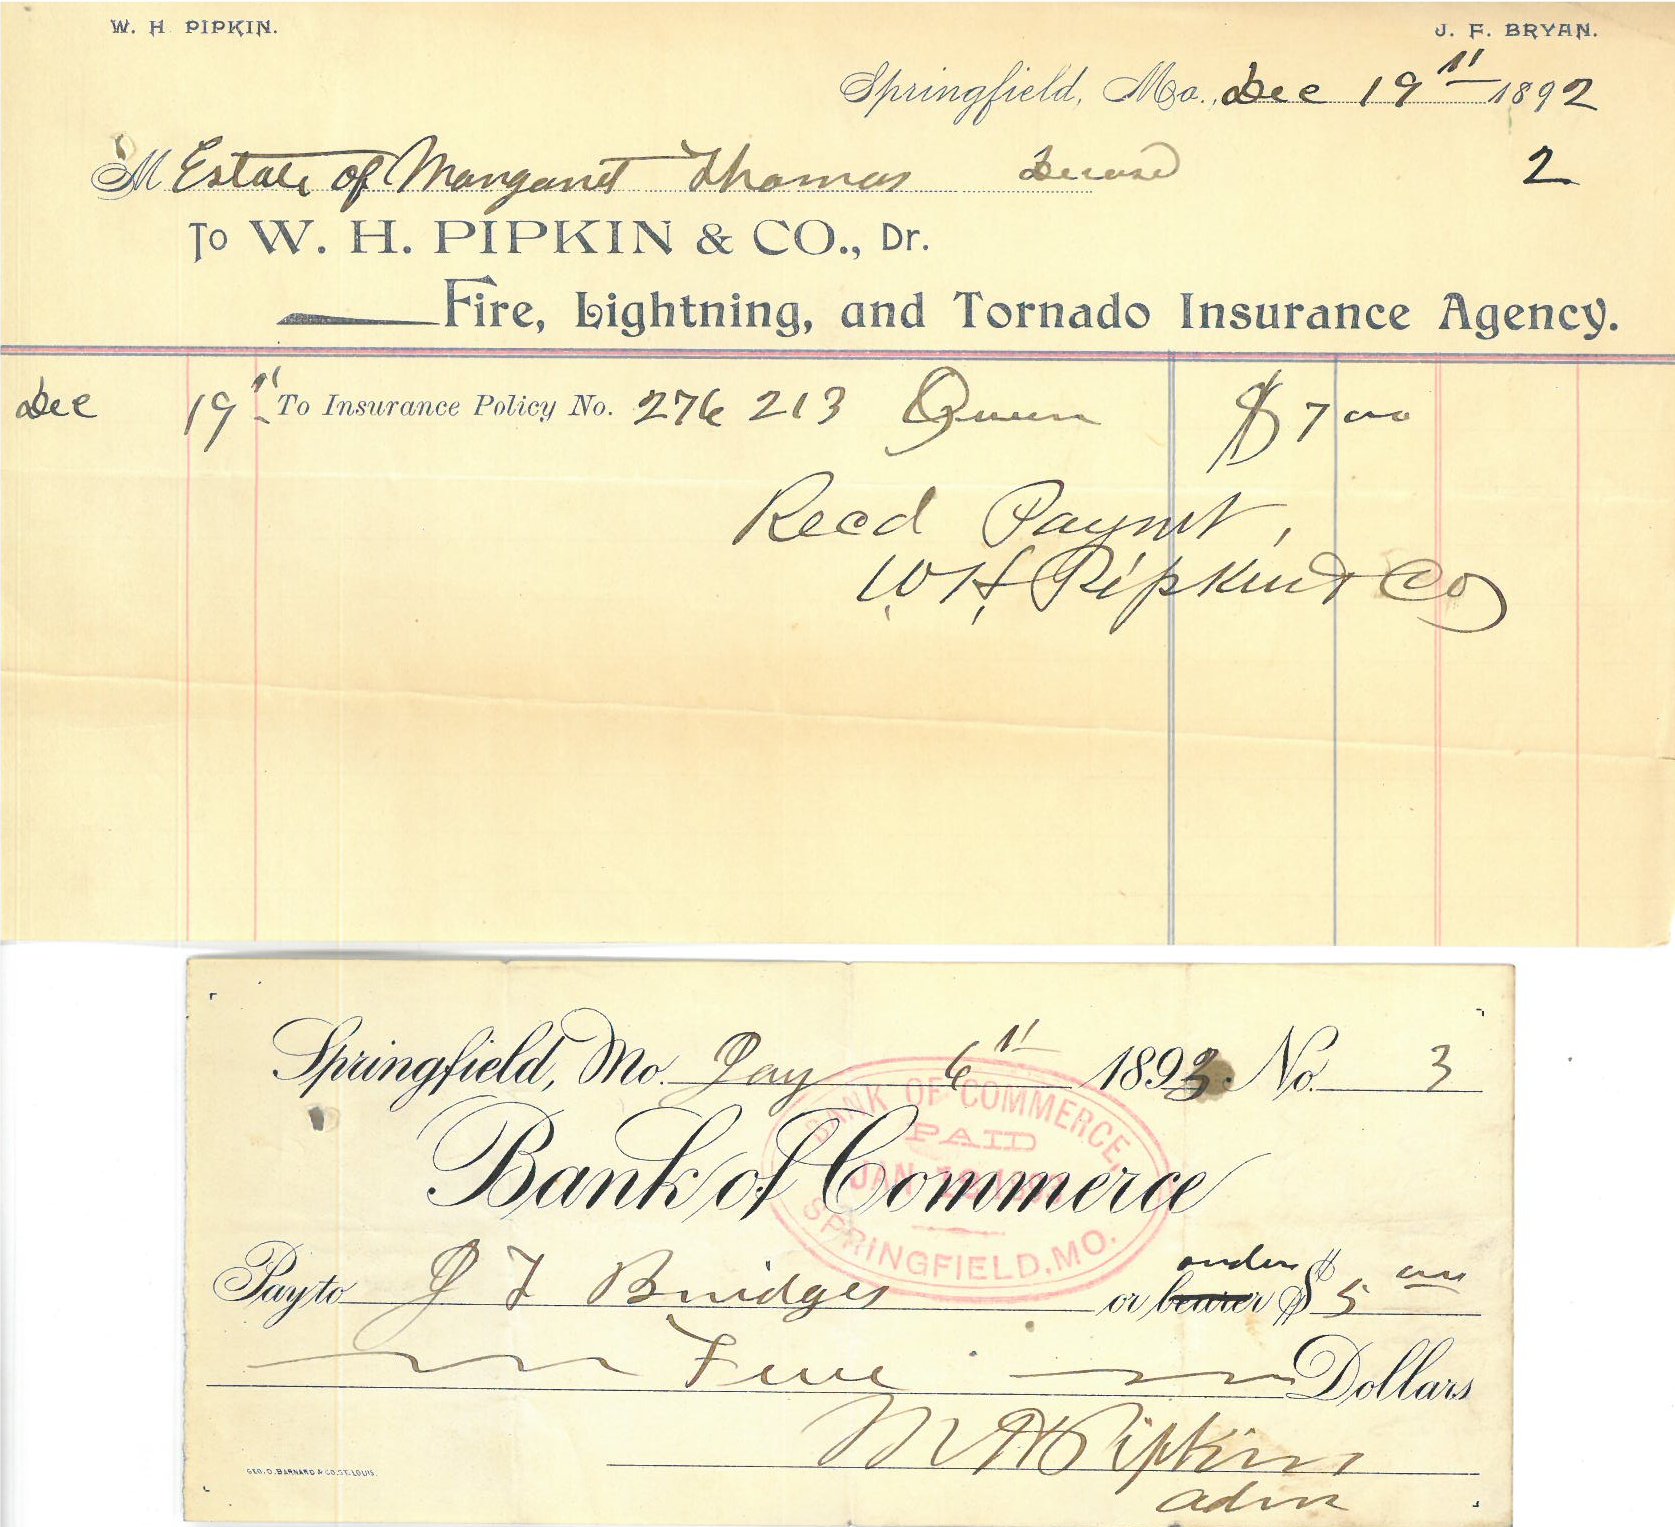 W. H. PIPKIN.
J. F. BRYAN.
Springfield, Mo., Dec 19" 1892
M Estate of Margaret Thomas Deceased 2
To W. H. PIPKIN & CO., Dr.
Fire, Lightning, and Tornado Insurance Agency.
Dec 19" To Insurance Policy No. 276 213 Queen $ 7 00
Recd Paymt,
W H Pipkin & Co
Springfield, Mo. Jay 6" 1893 No. 3
BANK OF COMMERCE,
PAID
JAN
SPRINGFIELD, MO.
Bank of Commerce
order
Pay to J F Bridges or bearer $ 5 00
Five Dollars
W H Pipkin
Admr
GEO. D. BARNARD & CO. ST. LOUIS.